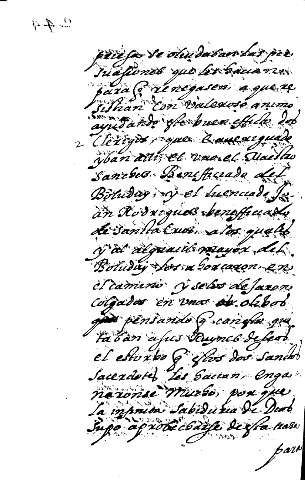 priesa se olvidaban las per
suasiones que les hacian
para q renegasen a que re
sistian con valeroso animo
ayudando a este buen efecto dos
clerigos, que
yban alli el uno el
Sanchez Beneficiado del
Boluduy, y el licenciado Ju
an Rodriguez beneficiado
de Santa Cruz, a los quales
y al alguacil mayor del
Boluduy los ahorcaron en
el camino y se los dejaron
colgados en unos olibos
pensando q con esto qui
taban a sus Ruynes deseos
el estorbo q estos dos sanctos
sacerdotes les hacian. Enga
naronse mucho, por que
la infinita sabiduria de Dios
supo aprobecharse de esta traza
para